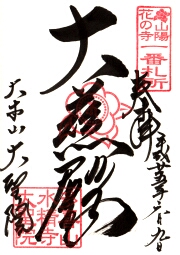 山陽
花の寺
一番札所
奉拝
平成廿五年六月九日
大慈殿
大本山大聖院
水精寺
大聖院